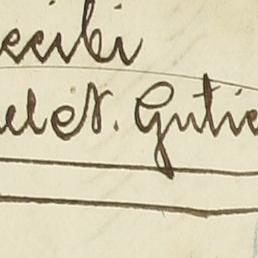 ecibi
el N. Gutie